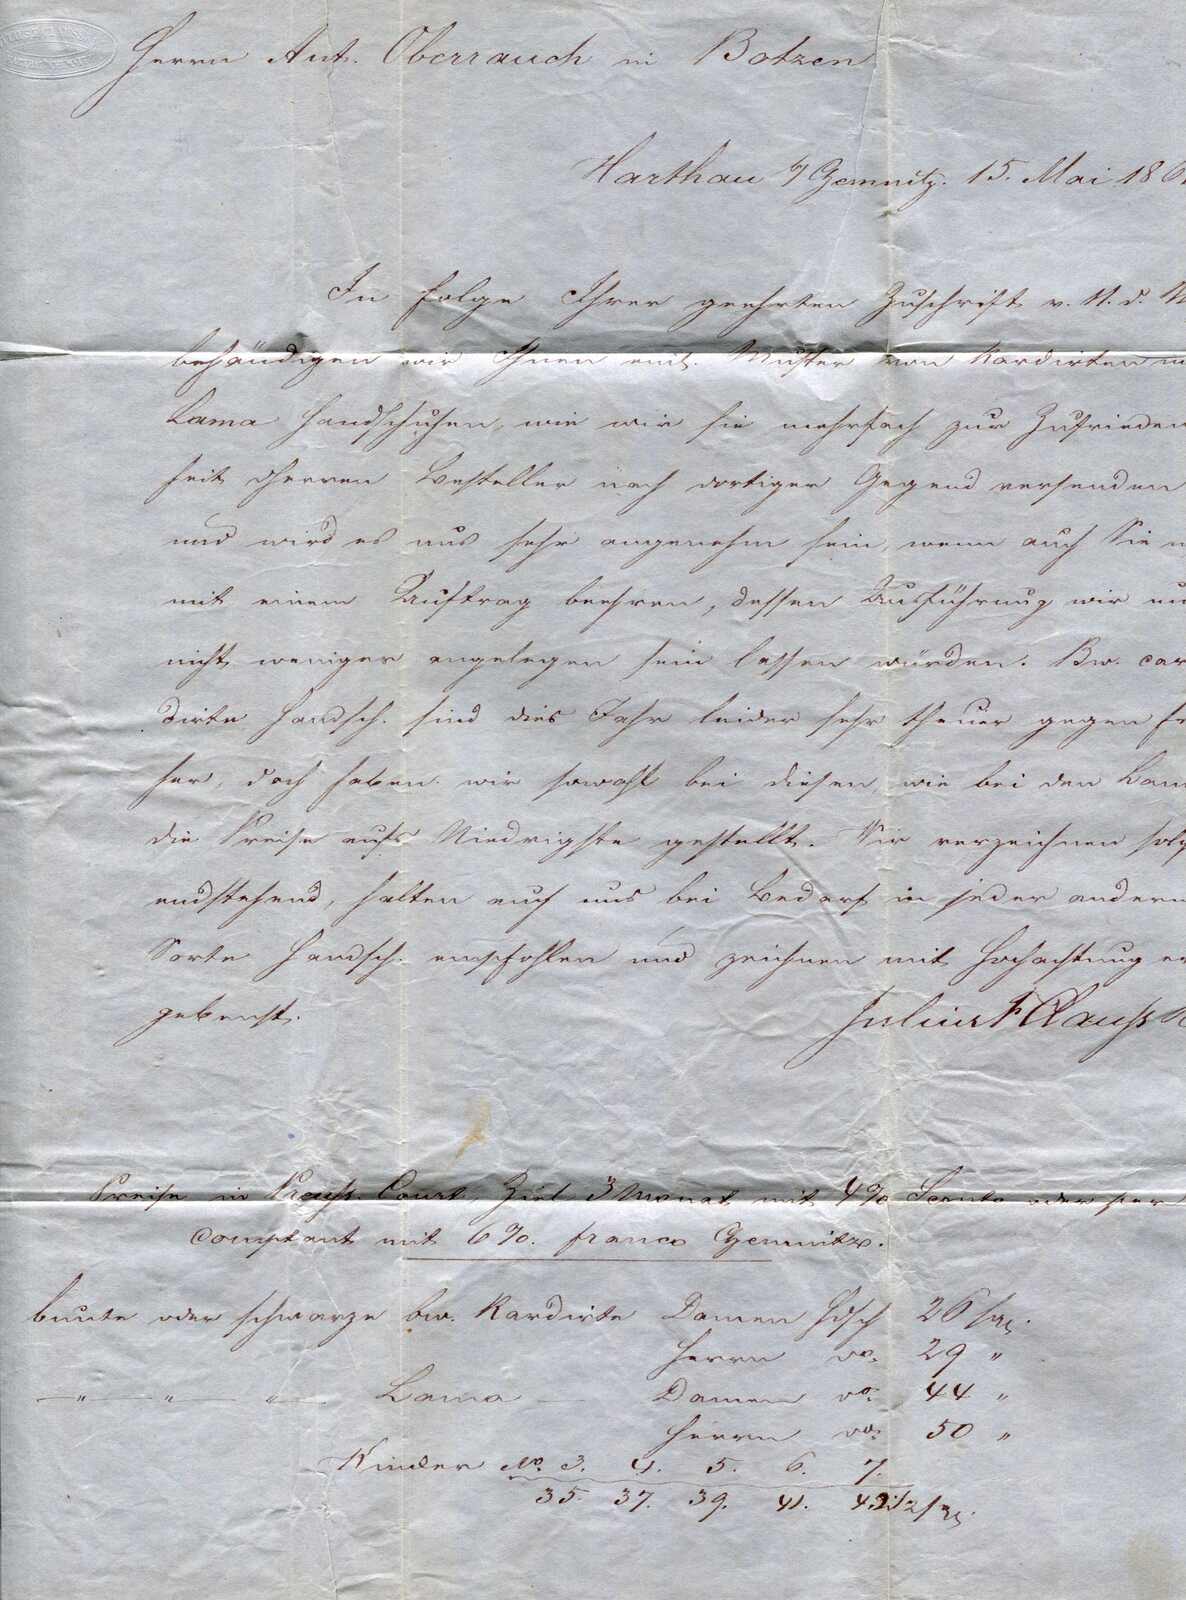 Herrn Ant. Oberrauch in Botzen
Harthau b/ Chemnitz. 15. Mai 186
In Folge Ihrer geehrten Zuschrift v. 11. d. M
behändigen wir Ihnen mit. Muster von Kardirten
Lama Handschuhen, wie wir sie mehrfach zur Zufrieden
heit Herren Besteller nach dortiger Gegend versenden
und wird es uns sehr angenehm sein, wenn auch Sie
mit einem Auftrag beehren, dessen Ausführung wir uns
nicht weniger angelegen sein lassen würden. Bw. car
dirte Handsch. sind dies Jahr leider sehr theuer gegen frü
her, doch haben wir sowohl bei diesen, wie bei den Lama
die Preise aufs Niedrigste gestellt. Wir verzeichnen solche
endstehend, halten auch uns bei Bedarf in jeder andern
Sorte Handsch. empfohlen und zeichnen mit Hochachtung er
gebenst.
Julius F Clauss
Preise in Preuss. Court, Ziel 3 Monat mit 4% Sconto oder per
comptant mit 6%. franco Chemnitz.
bunte oder schwarze bw. Kardirte Damen Hdsch 26 sgr.
Herrn do. 29 "
— " — " — " — Lama — Damen do. 44 "
Herrn do. 50 "
Kinder No. 3. 4. 5. 6. 7.
35. 37. 39. 41. 42 1/2 sgr.